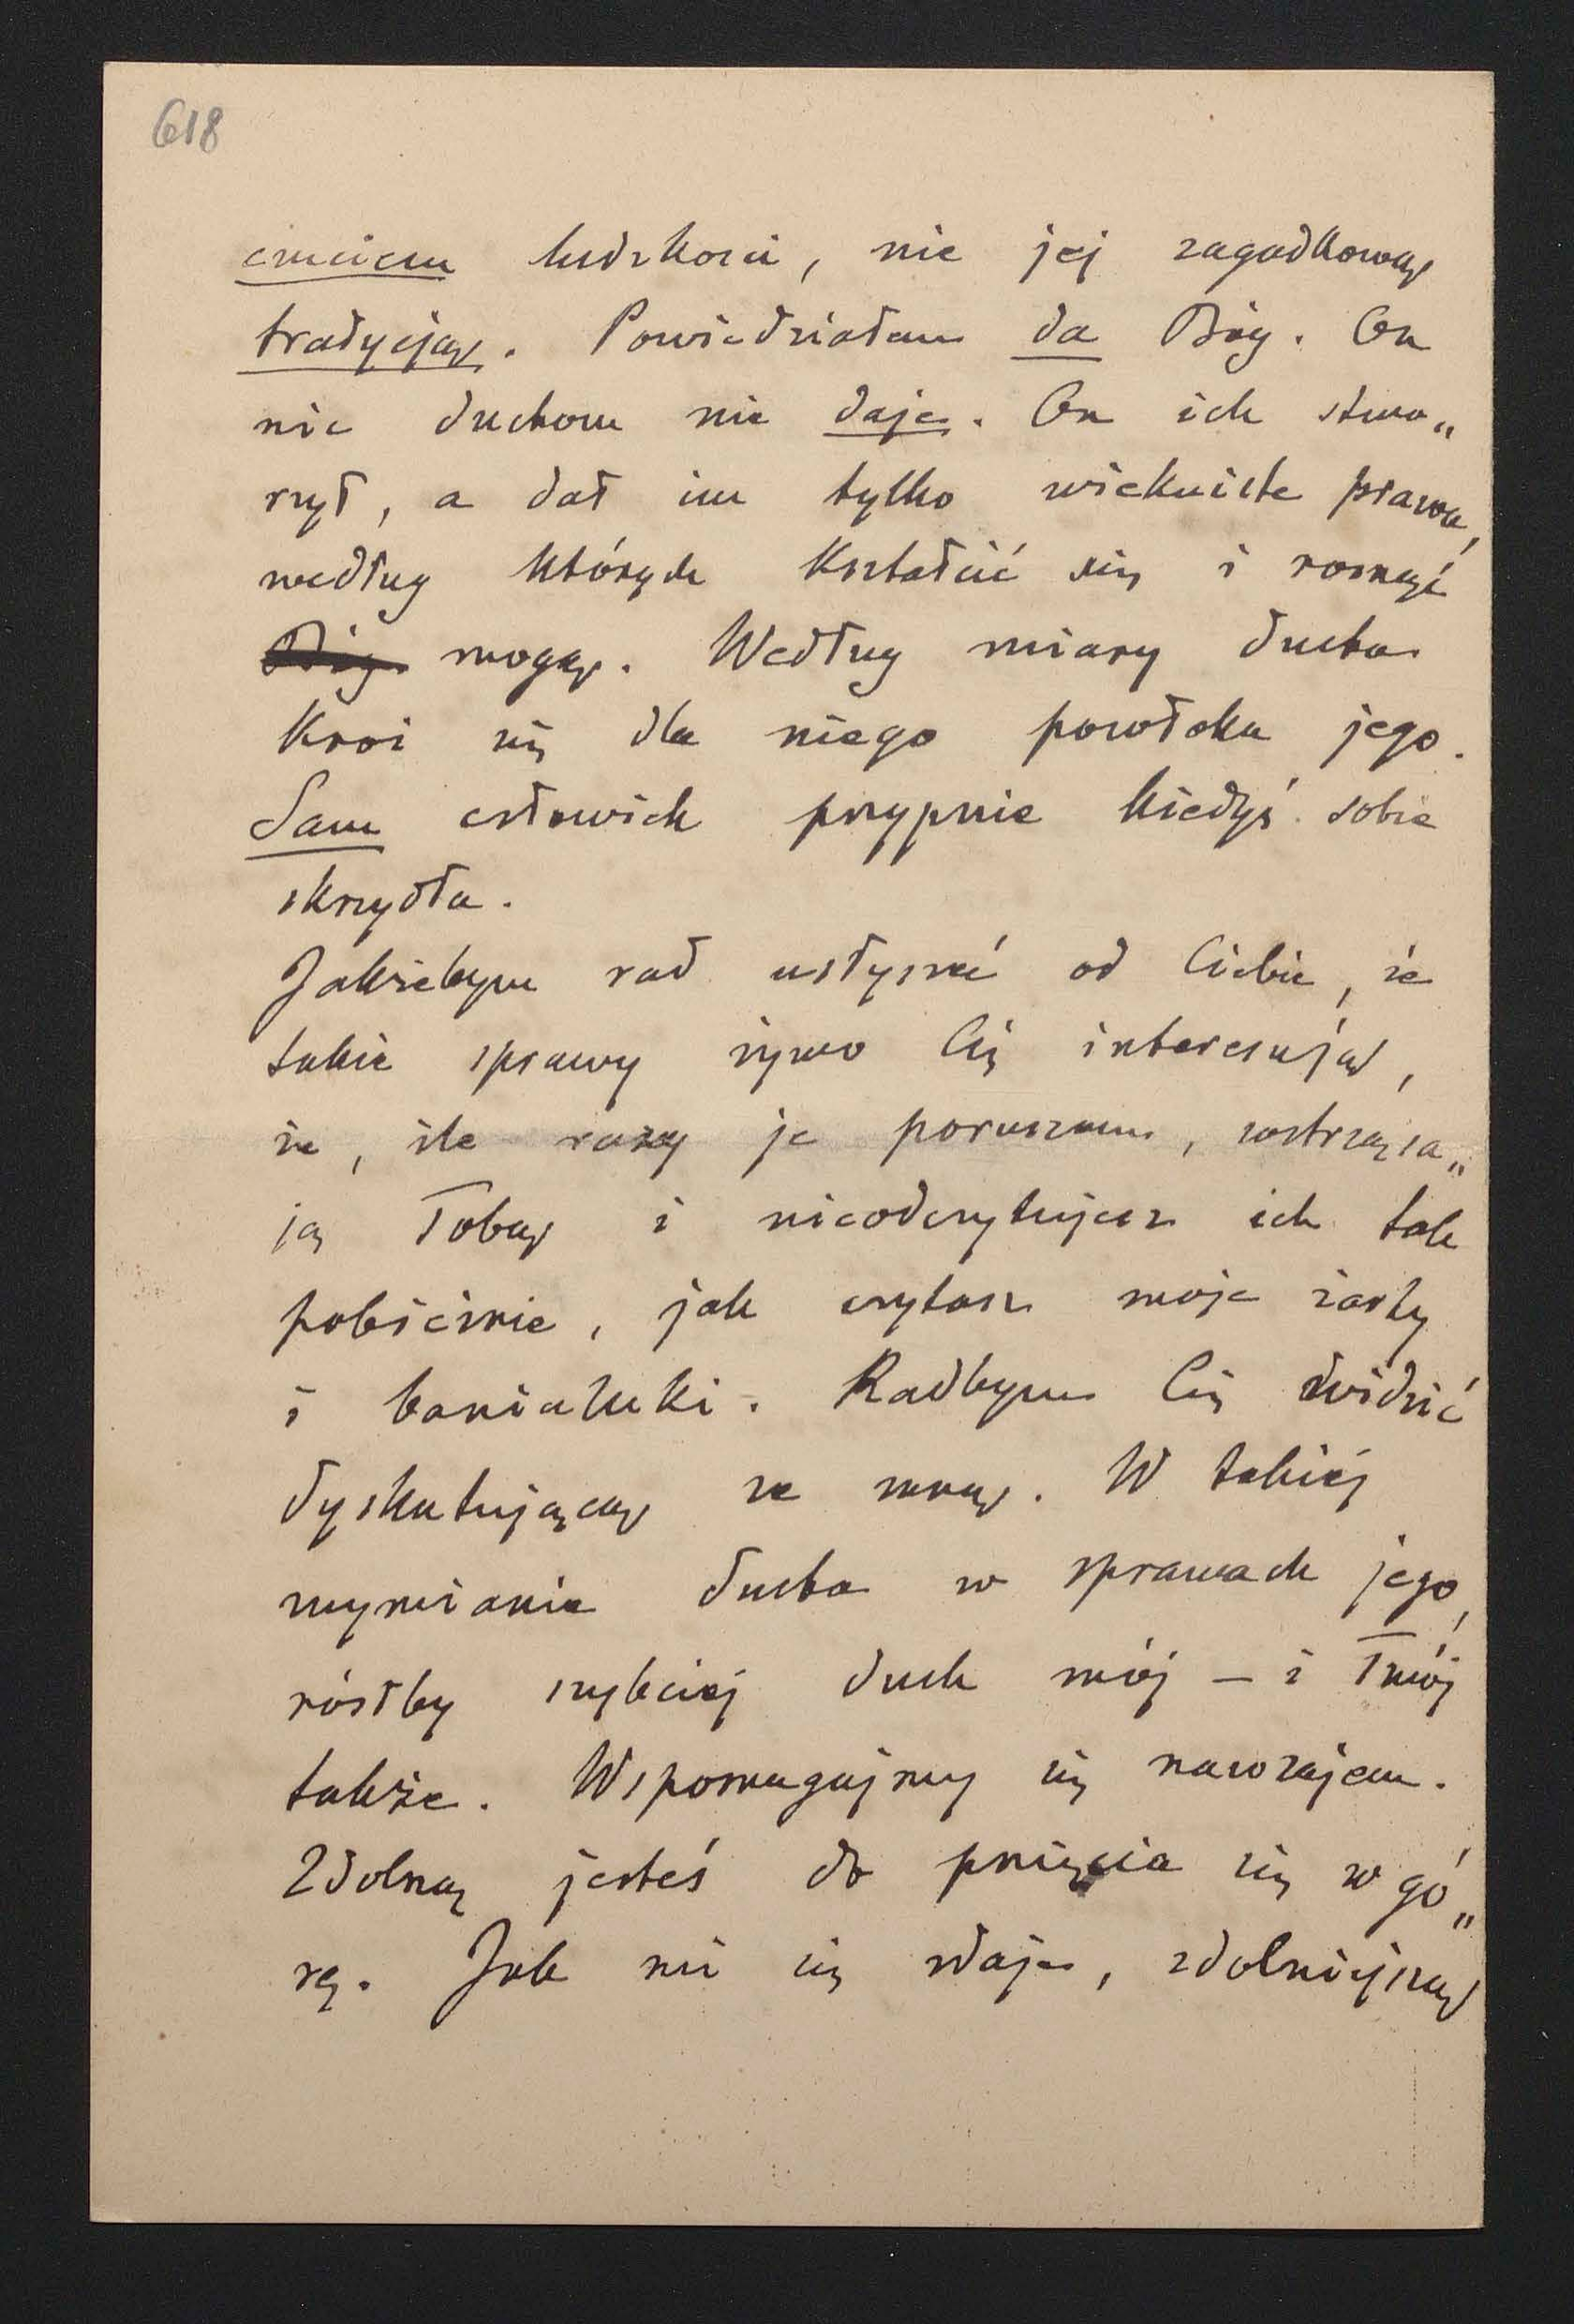 618
czuciem ludzkości, nie jej zagadkową
tradycją. Powiedziałam da Bóg. On
nic duchom nie daje. On ich stwo„
rzył, a dał im tylko wiekuiste prawa,
według których kształcić się i rosnąć
Bóg mogą. Według miary ducha
kroi się dla niego powłoka jego.
Sam człowiek przypnie kiedyś sobie
skrzydła.
Jakżebym rad usłyszeć od Ciebie, że
takie sprawy żywo Cię interesują,
że, ile razy je poruszam, wstrząsa„
ją Tobą i nieodczytujesz ich tak
pobieżnie, jak czytasz moje żarty
i banialuki. Radbym Cię widzieć
dyskutującą ze mną. W takiéj
wymianie ducha w sprawach jego,
rósłby szybciéj duch mój — i Twój
także. Wspomagajmy się nawzajem.
Zdolną jesteś do pnięcia się w gó„
rę. Jak mi się zdaje, zdolniejszą